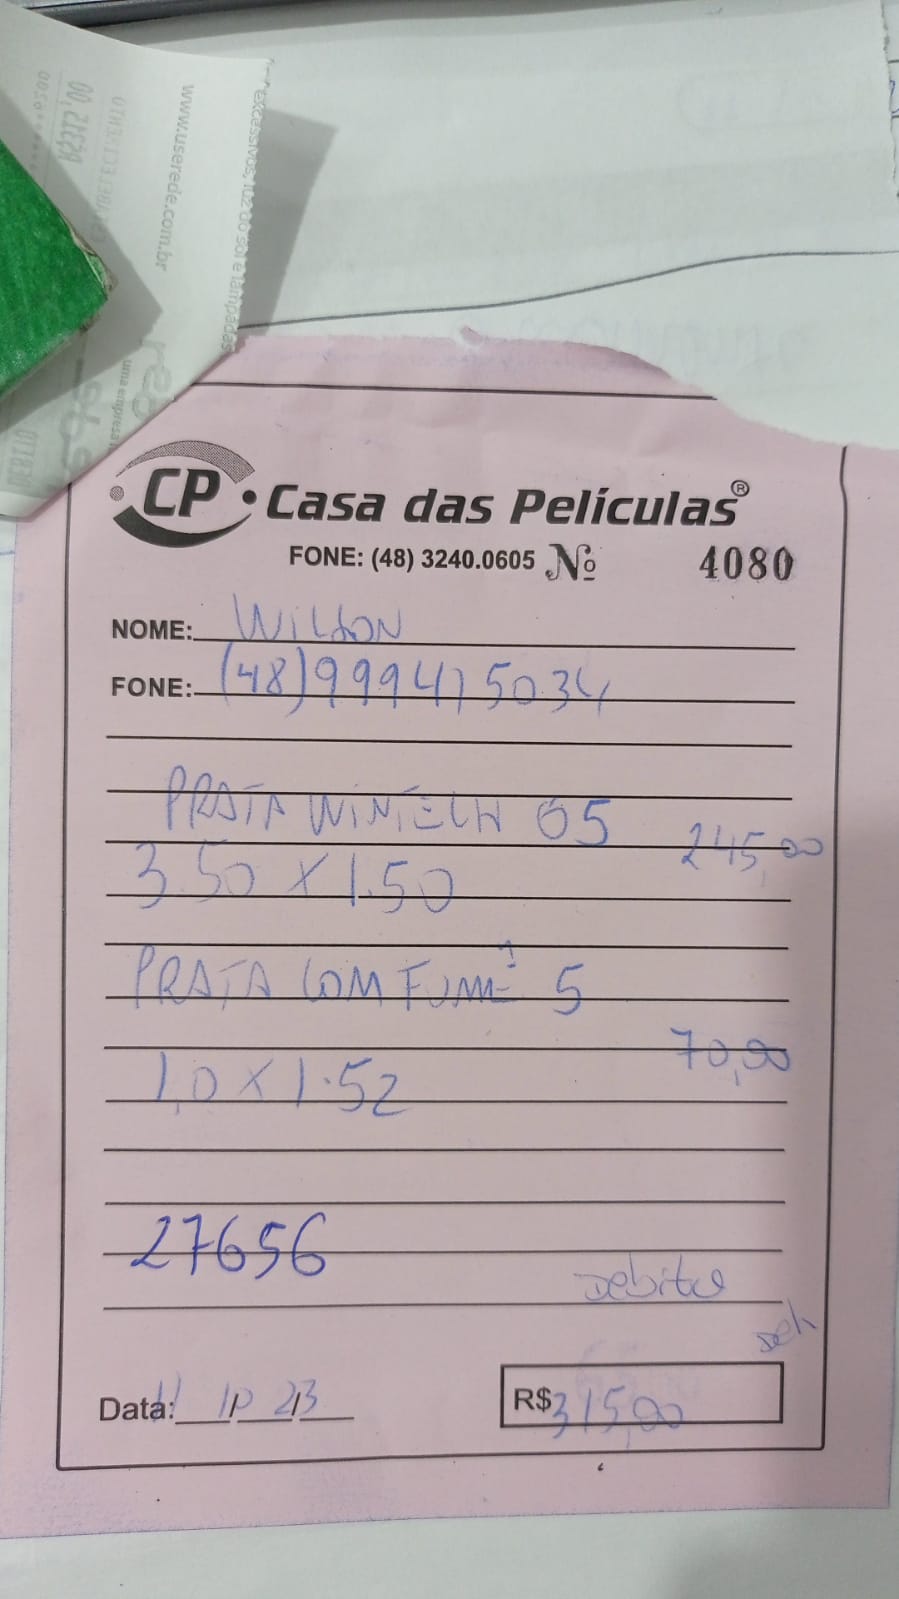 www.userede.com.br
excessivos, luz do sol e lâmpadas
uma empresa
CP Casa das Películas®
FONE: (48) 3240.0605 Nº 4080
NOME: WILSON
FONE: (48) 999475034
PRATA WINTECH 05 245,00
3.50 x 1.50
PRATA COM FUMÊ 5
70,00
1,0 x 1.52
27656
Debito
Data: 11/10/23 R$ 315,00